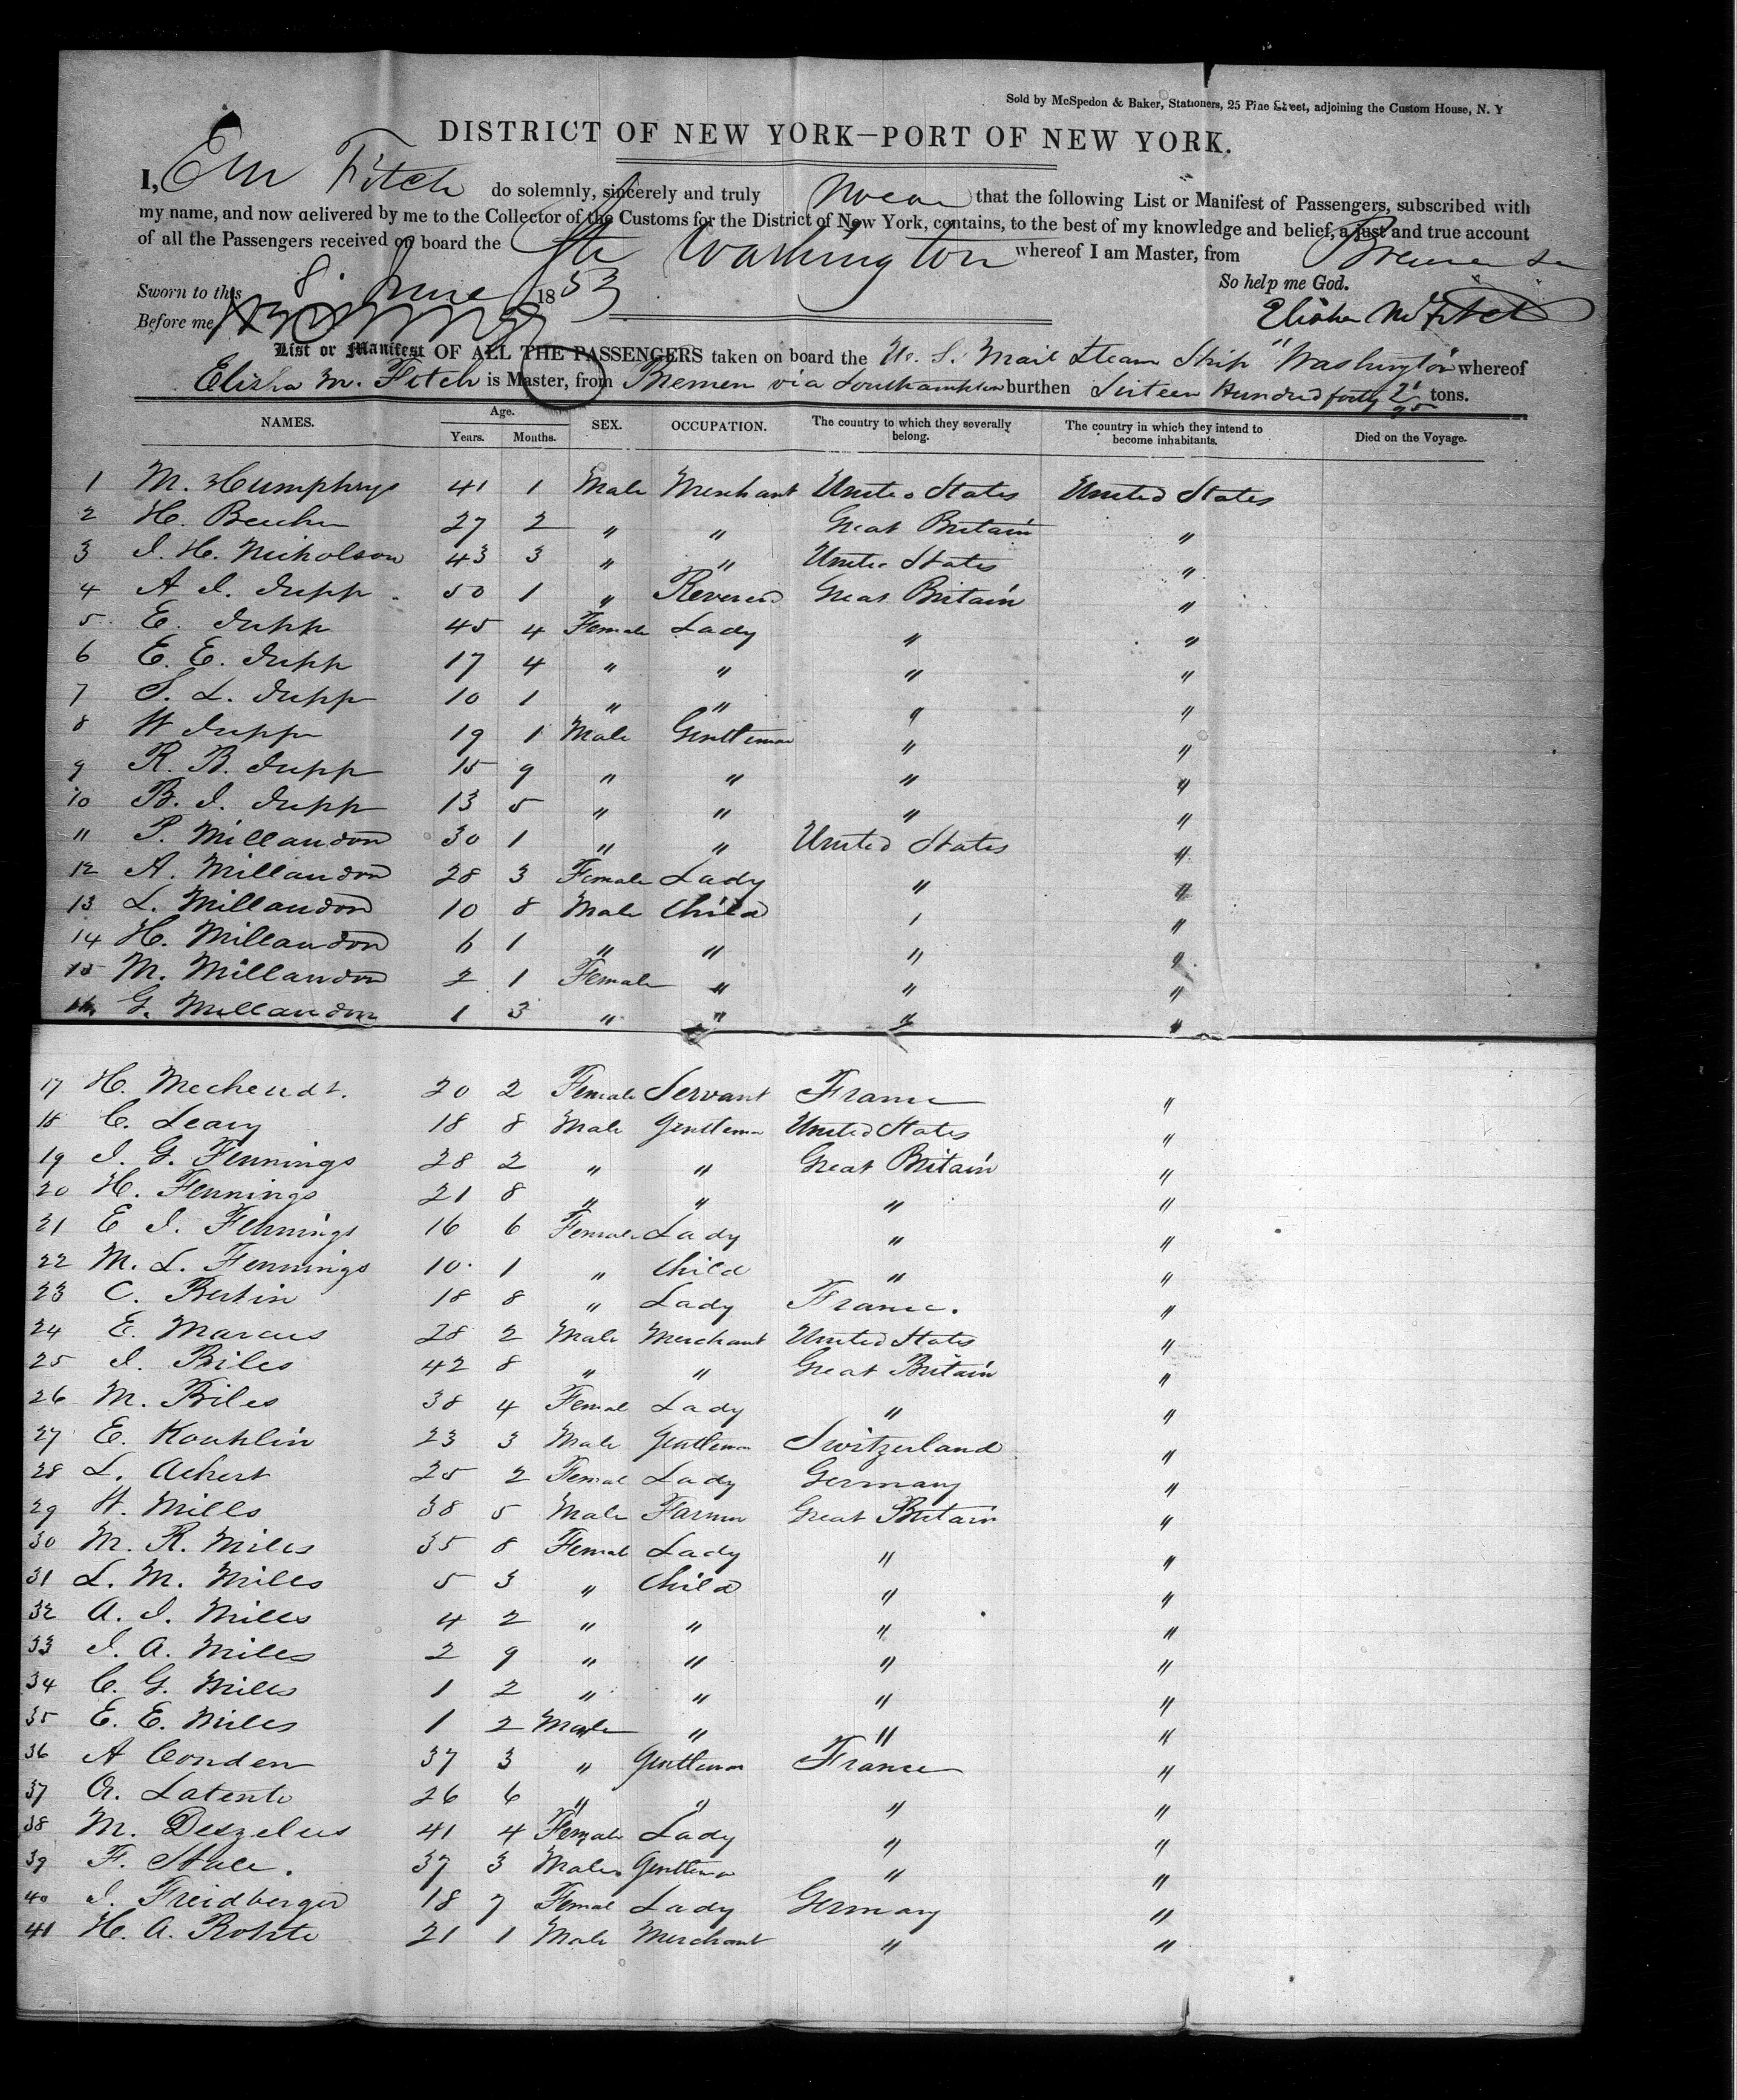 Sold by McSpedon & Baker, Stationers, 25 Pine Street, adjoining the Custom House, N. Y
DISTRICT OF NEW YORK—PORT OF NEW YORK.
I, E M Fitch do solemnly, sincerely and truly swear that the following List or Manifest of Passengers, subscribed with
my name, and now delivered by me to the Collector of the Customs for the District of New York, contains, to the best of my knowledge and belief, a just and true account
of all the Passengers received on board the Str Washington whereof I am Master, from Bremen
Sworn to this 8 June 1853 So help me God.
Before me Elisha M Fitch
List or Manifest OF ALL THE PASSENGERS taken on board the U. S. Mail Steam Ship "Washington" whereof
Elisha M. Fitch is Master, from Bremen via Southampton burthen Sixteen Hundred forty 2/95 tons.
NAMES. Age. Years. Months. SEX. OCCUPATION. The country to which they severally belong. The country in which they intend to become inhabitants. Died on the Voyage.
1 M. Humphrys 41 1 Male Merchant United States United States
2 H. Beecher 27 2 " " Great Britain "
3 J. H. Nicholson 43 3 " " United States "
4 A J. Jupp 50 1 " Reverend Great Britain "
5 E. Jupp 45 4 Female Lady " "
6 E. E. Jupp 17 4 " " " "
7 S. L. Jupp 10 1 " " " "
8 W Jupp 19 1 Male Gentleman " "
9 R. B. Jupp 15 9 " " " "
10 B. J. Jupp 13 5 " " " "
11 P. Millaudon 30 1 " " United States "
12 A. Millaudon 28 3 Female Lady " "
13 L. Millaudon 10 8 Male Child " "
14 H. Millaudon 6 1 " " " "
15 M. Millaudon 2 1 Female " " "
16 G. Millaudon 1 3 " " " "
17 H. Mecheudt. 20 2 Female Servant France "
18 C. Leary 18 8 Male Gentleman United States "
19 J. G. Fennings 28 2 " " Great Britain "
20 H. Fennings 21 8 " " " "
21 E J. Fennings 16 6 Female Lady " "
22 M. L. Fennings 10 1 " Child " "
23 C. Bertin 18 8 " Lady France. "
24 E. Marcus 28 2 Male Merchant United States "
25 J. Biles 42 8 " " Great Britain "
26 M. Biles 38 4 Female Lady " "
27 E. Kouhlin 23 3 Male Gentleman Switzerland "
28 L. Achert 25 2 Female Lady Germany "
29 W. Mills 38 5 Male Farmer Great Britain "
30 M. R. Mills 35 8 Female Lady " "
31 L. M. Mills 5 3 " Child " "
32 A. J. Mills 4 2 " " " "
33 J. A. Mills 2 9 " " " "
34 C. G. Mills 1 2 " " " "
35 E. E. Mills 1 2 Male " " "
36 A Conden 37 3 " Gentleman France "
37 A. Latente 26 6 " " " "
38 M. Deszelus 41 4 Female Lady " "
39 F. Stale. 37 3 Male Gentleman " "
40 J. Freidberger 18 7 Female Lady Germany "
41 H. A. Rohte 21 1 Male Merchant " "